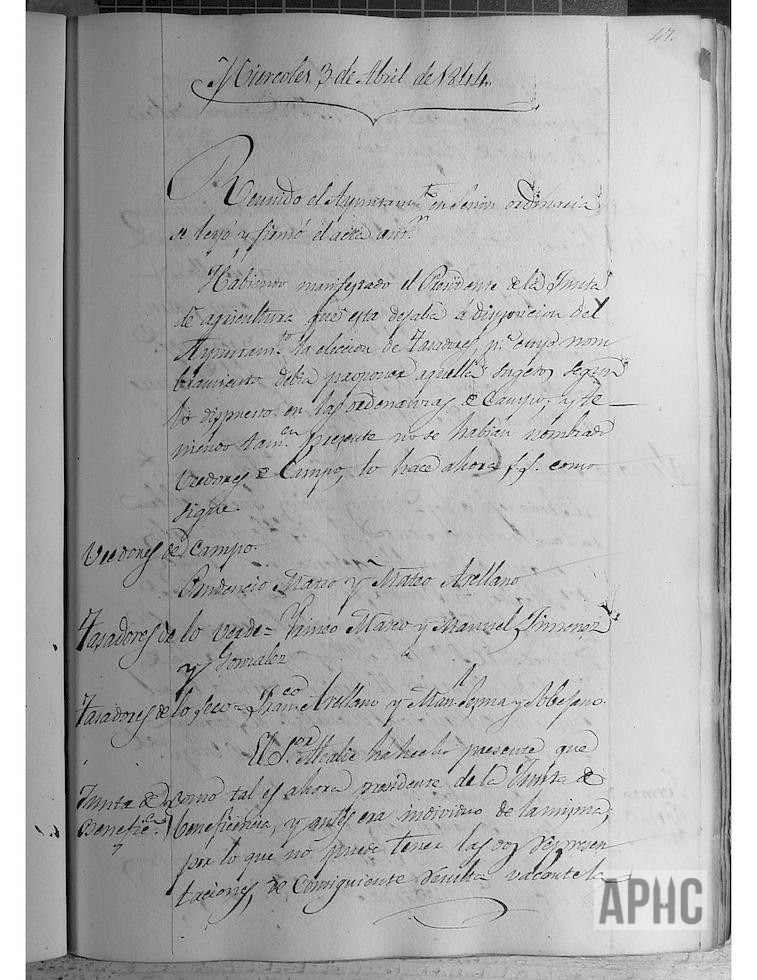 47.
Miercoles 3 de Abril de 1844.
Reunido el Ayuntam.to en sesion ordinaria
se leyó y firmó el acta ant.r
Habiendo manifestado el Presidente de la Junta
de agricultura que esta dejaba á disposicion del
Ayuntam.to la eleccion de Tasadores p.a cuyo nom
bramiento debia proponer aquella sugetos segun
lo dispuesto en las ordenanzas de Campo, y te
niendo tam.en presente no se habian nombrado
Veedores de Campo, lo hace ahora como
sigue.
Veedores de Campo.
Prudencio Mateo y Mateo Arellano
Tasadores de lo verde = Mateo y Manuel Jimenez
y Gonzalez
Tasadores de lo seco = Fran.co Arellano y Man.l y Sobejano.
El S.or Alcalde ha hecho presente que
Junta de
Benefic.a
como tal es ahora presidente de la Junta de
beneficencia, y antes era individuo de la misma,
por lo que no puede tener las dos represen
taciones, de consiguiente resulta vacante la
APHC